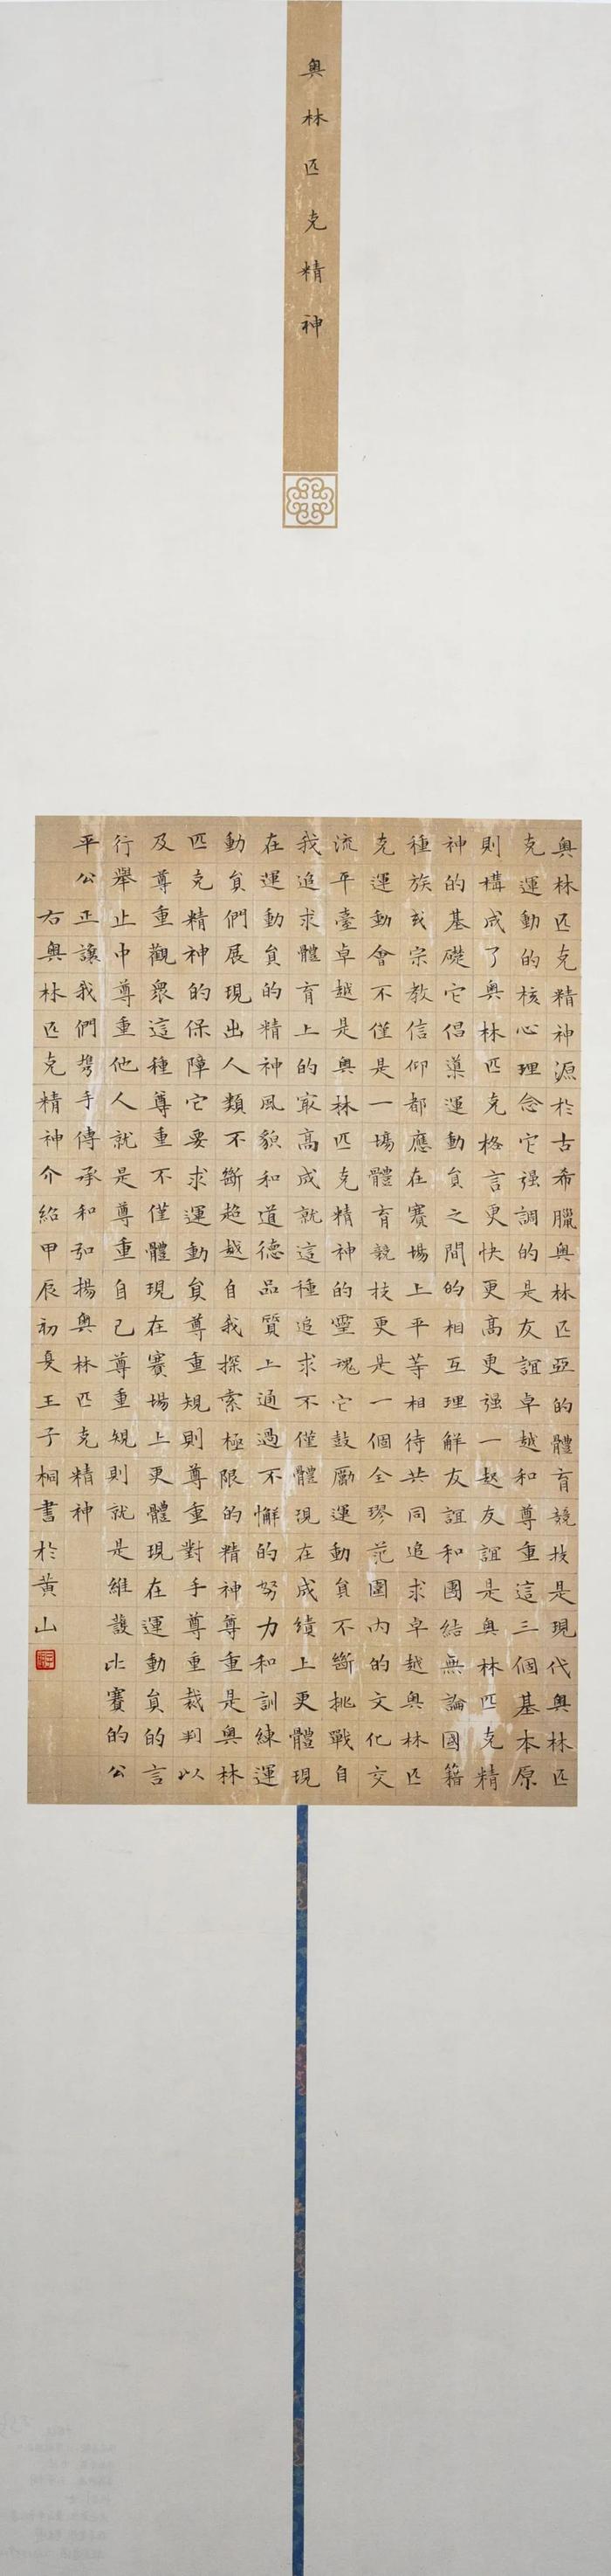 奥林匹克精神
奥林匹克精神源於古希臘奥林匹亞的體育競技是現代奥林匹
克運動的核心理念它强調的是友誼卓越和尊重這三個基本原
則構成了奥林匹克格言更快更高更强一起友誼是奥林匹克精
神的基礎它倡導運動員之間的相互理解友誼和團結無論國籍
種族或宗教信仰都應在賽場上平等相待共同追求卓越奥林匹
克運動會不僅是一場體育競技更是一個全球范圍内的文化交
流平臺卓越是奥林匹克精神的靈魂它鼓勵運動員不斷挑戰自
我追求體育上的最高成就這種追求不僅體現在成績上更體現
在運動員的精神風貌和道德品質上通過不懈的努力和訓練運
動員們展現出人類不斷超越自我探索極限的精神尊重是奥林
匹克精神的保障它要求運動員尊重規則尊重對手尊重裁判以
及尊重觀眾這種尊重不僅體現在賽場上更體現在運動員的言
行舉止中尊重他人就是尊重自己尊重規則就是維護比賽的公
平公正讓我們携手傳承和弘揚奥林匹克精神
右奥林匹克精神介紹甲辰初夏王子桐書於黄山